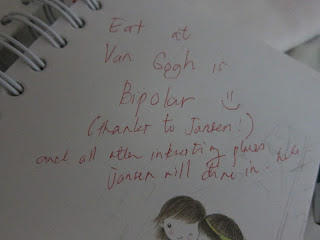 Eat at
Van Gogh is
Bipolar
(thanks to Jansen!)
and all other interesting places
Jansen will chime in